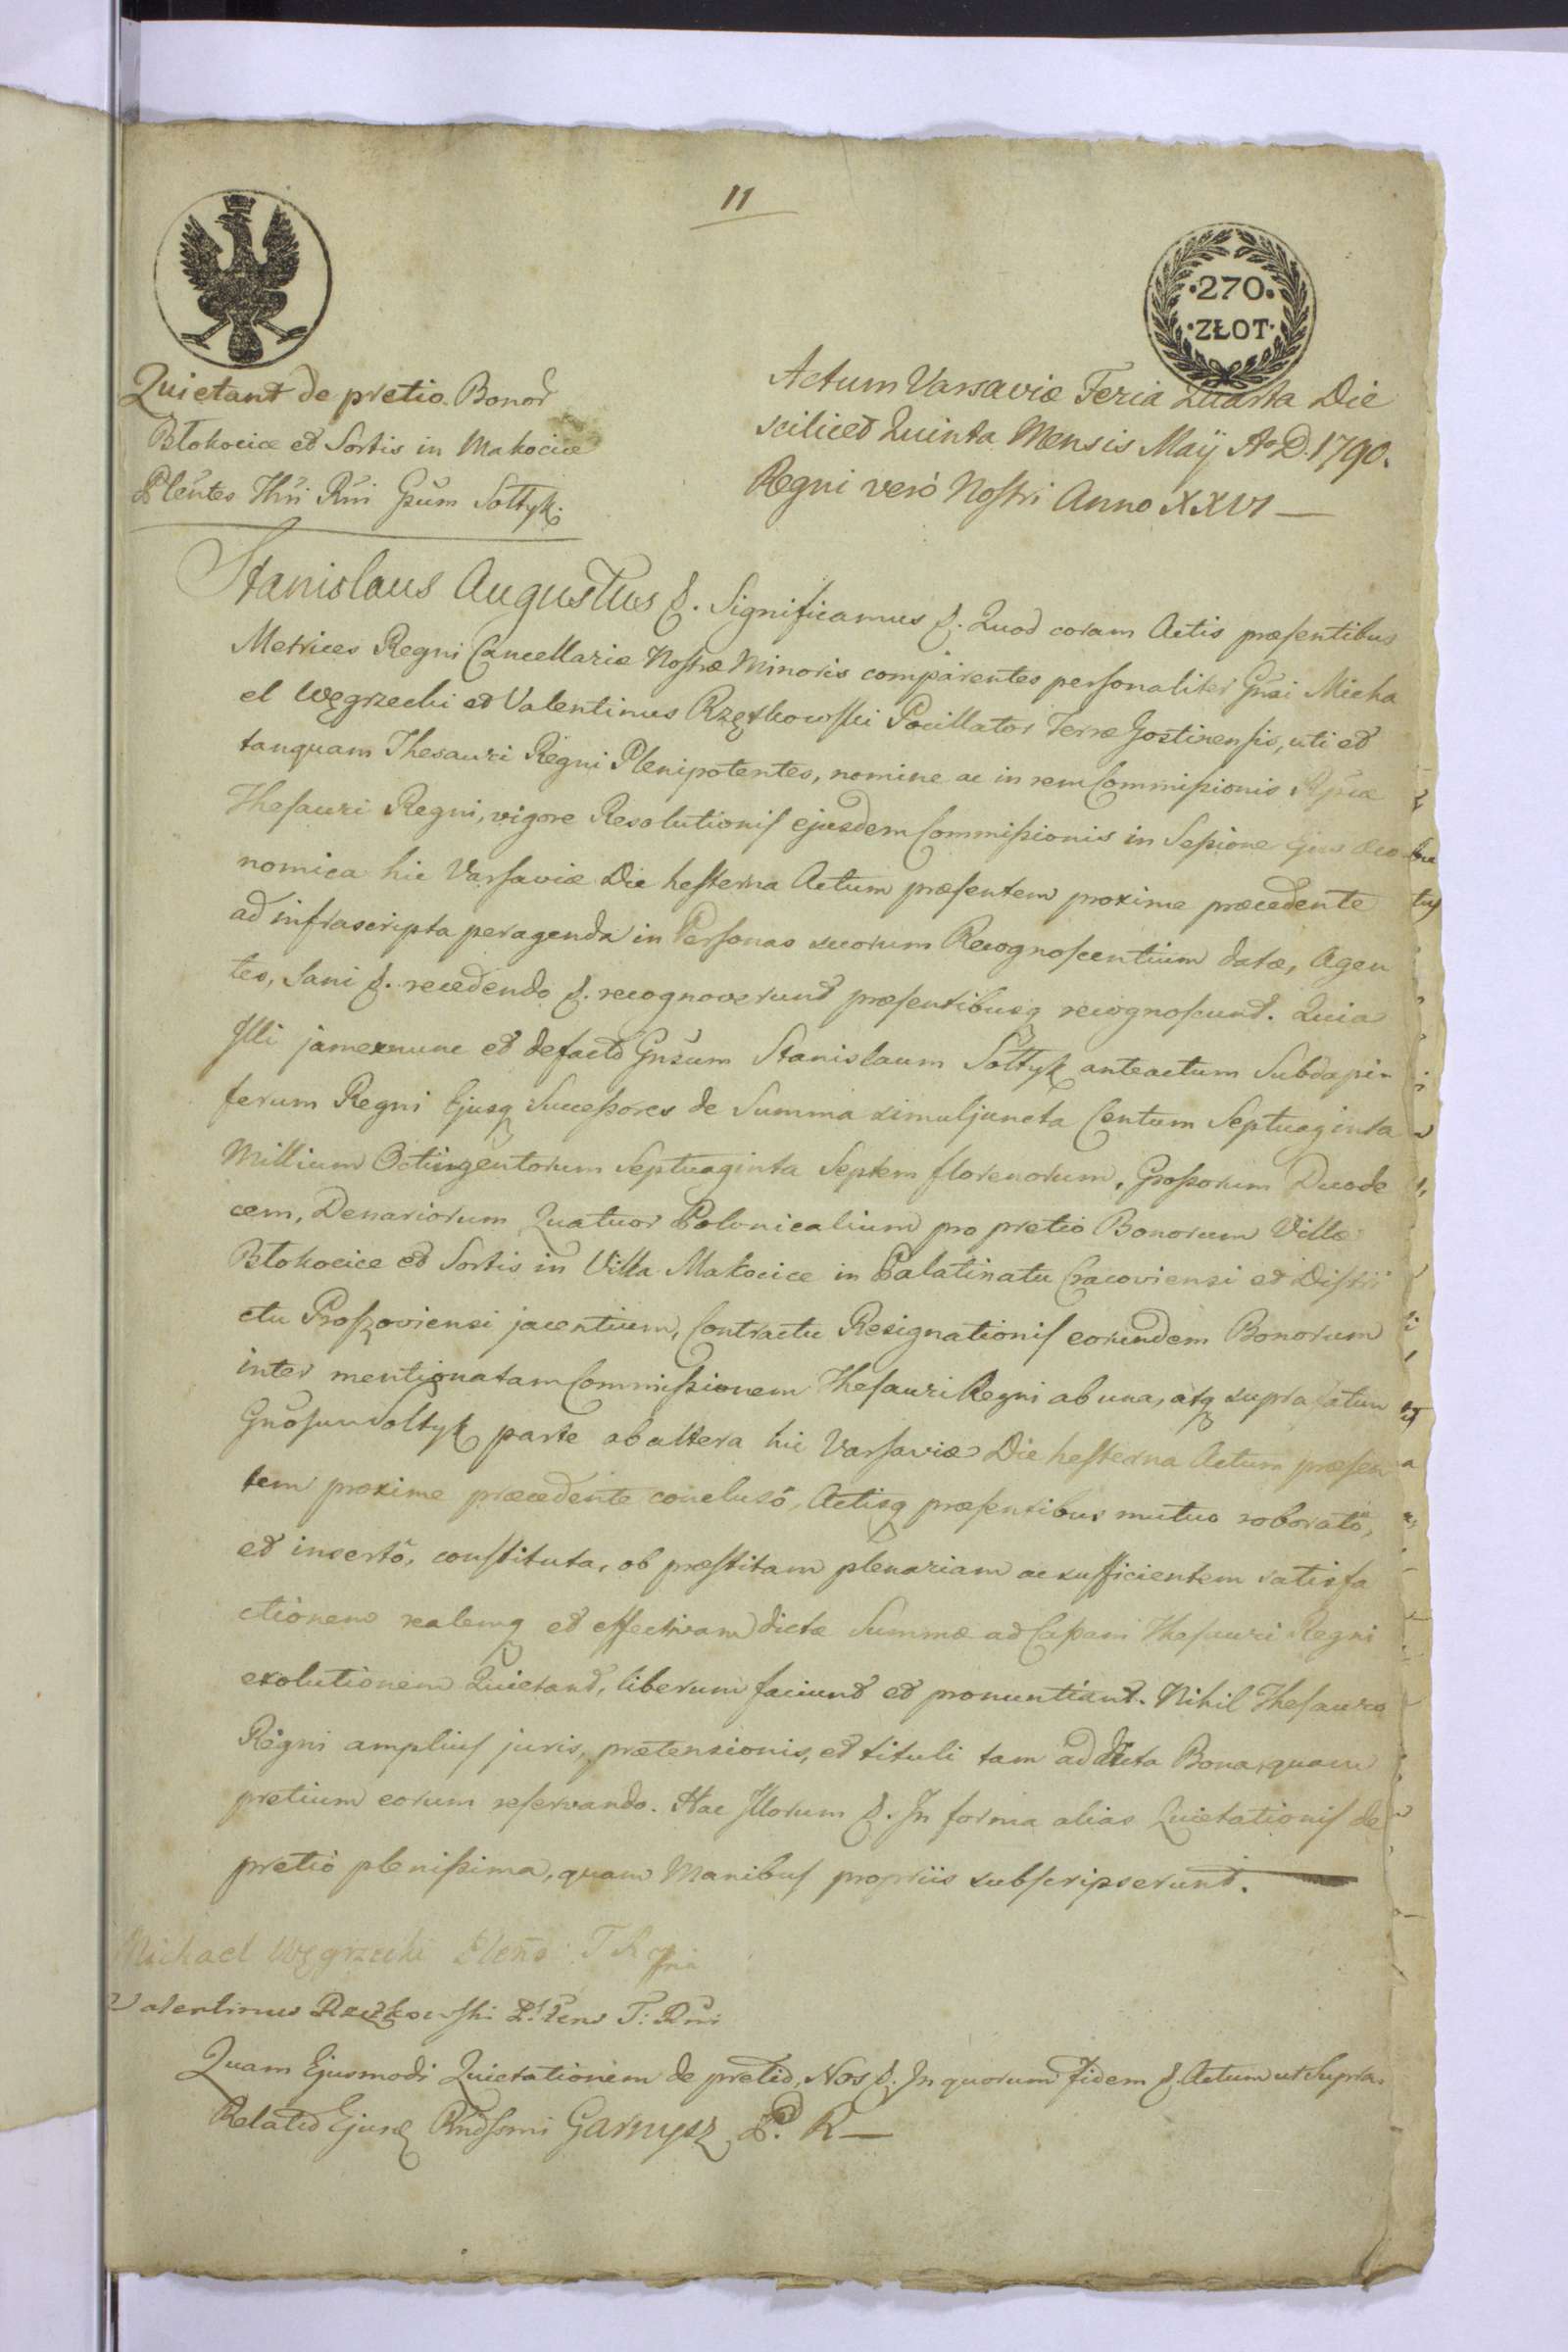 11
·270·
·ZŁOT·
Quietant de pretio Bonor
Błokocice et Sortis in Makocice
Plentes Thri Rni Gsum Sołtyk.
Actum Varsaviæ Feria Quarta Die
scilicet Quinta Mensis Maÿ Ao D. 1790.
Regni verò Nostri Anno XXVI —
Stanislaus Augustus &. Significamus &. Quod coram Actis præsentibus
Metrices Regni Cancellariæ Nostræ Minoris comparentes personaliter Gnsi Micha
el Węgrzecki et Valentinus Rzętkowski Pocillator Terræ Gostinensis, uti et
tanquam Thesauri Regni Plenipotentes, nomine ac in rem Commissionis
Thesauri Regni, vigore Resolutionis ejusdem Commissionis in Sessione Ejus Oeco
nomica hic Varsaviæ Die hesterna Actum præsentem proxime præcedente
ad infrascripta peragenda in Personas suorum Recognoscentium datæ, Agen
tes, Sani &. recedendo &. recognoverunt præsentibusq recognoscunt. Quia
Illi jamexnunc et defacto Gnsum Stanislaum Sołtyk anteactum Subdapi-
ferum Regni Ejusq Successores de Summa simuljuncta Centum Septuaginta
Millium Octingentorum Septuaginta Septem florenorum, Grossorum Duode
cem, Denariorum Quatuor Polonicalium pro pretio Bonorum Villæ
Błokocice et Sortis in Villa Makocice in Palatinatu Cracoviensi et Distri
ctu Proszoviensi jacentium, Contractu Resignationis eorundem Bonorum
inter mentionatam Commissionem Thesauri Regni ab una, atq supra fatum
Gnosum Soltyk parte ab altera hic Varsaviæ Die hesterna Actum præsen
tem proxime præcedente conclusô, Actisq præsentibus mutuo roboratô,
et insertô, constituta, ob præstitam plenariam ac sufficientem satisfa
ctionem realemq et effectivam dictæ Summæ ad Cassam Thesauri Regni
exolutionem Quietant, liberum faciunt et pronuntiant. Nihil Thesauro
Regni amplius juris, prætensionis, et tituli tam ad dicta Bona, quam
pretium eorum reservando. Hac Illorum &. In forma alias Quietationis de
pretiò plenissima, quam Manibus propriis subscripserunt.
Michael Węgrzecki Plens T R
Valentinus Rzętkowski Plens T: Rni
Quam Ejusmodi Quietationem de pretio, Nos &. In quorum fidem &. Actum ut Supra.
Relatio Ejusd Rndssmi Garnysz P. R —